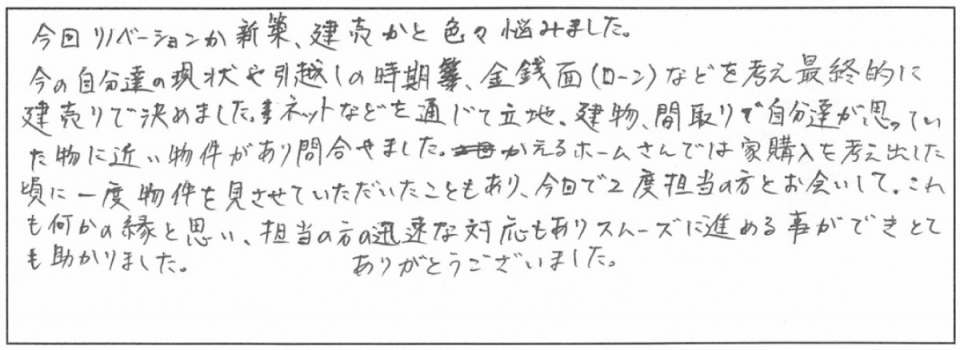 今回リノベーションか新築、建売かと色々悩みました。
今の自分達の現状や引越しの時期等、金銭面(ローン)などを考え最終的に
建売りで決めました。ネットなどを通じて立地、建物、間取りで自分達が思ってい
た物に近い物件があり問合せました。かえるホームさんでは家購入を考え出した
頃に一度物件を見させていただいたこともあり、今回で2度担当の方とお会いして。これ
も何かの縁と思い、担当の方の迅速な対応もありスムーズに進める事ができとて
も助かりました。 ありがとうございました。